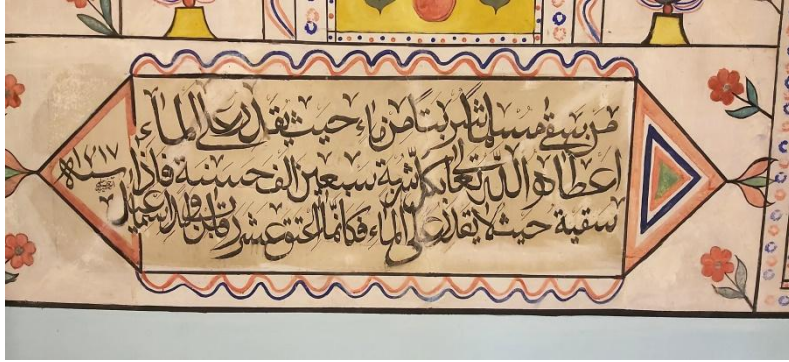 من سقى مسلما شربتا من ماء حيث يقدر على الماء
اعطاه الله تعالى بكل شربة سبعين الف حسنة فاذا
سقية حيث لا يقدر على الماء فكانما اعتق عشر رقاب من ولد اسماعيل
سنه ١٢١٧